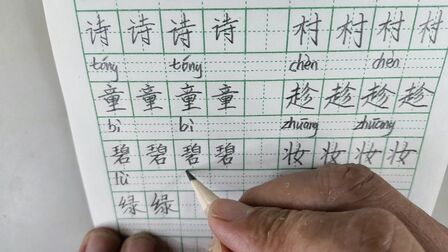 诗 诗 诗 诗 村 村 村 村
tóng tóng chèn chèn
童 童 童 童 趁 趁 趁 趁
bì bì zhuāng zhuāng
碧 碧 碧 碧 妆 妆 妆 妆
lǜ
绿 绿